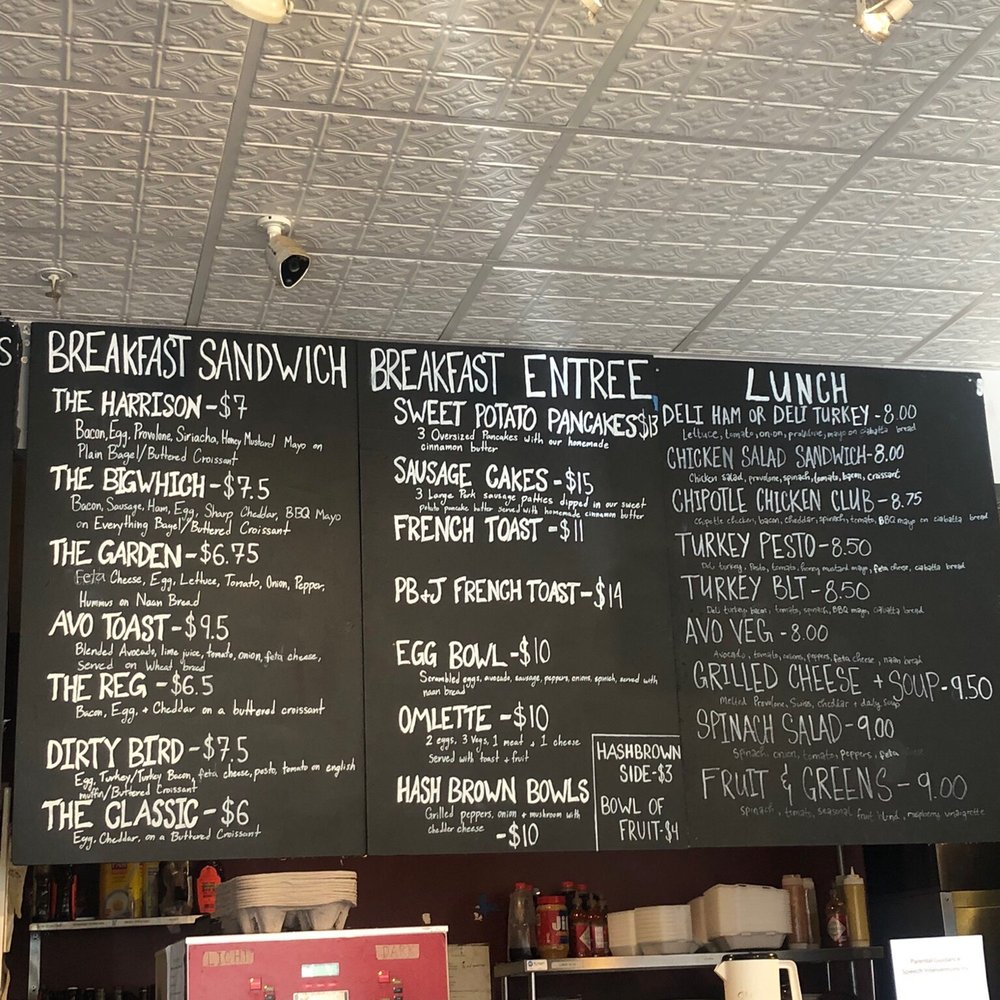 S
BREAKFAST SANDWICH
THE HARRISON-$7
Bacon, Egg, Provolone, Siriacha, Honey Mustard Mayo on
Plain Bagel/Buttered Croissant
THE BIGWHICH-$7.5
Bacon, Sausage, Ham, Egg, Sharp Cheddar, BBQ Mayo
on Everything Bagel/Buttered Croissant
THE GARDEN-$6.75
Feta Cheese, Egg, Lettuce, Tomato, Onion, Pepper,
Hummus on Naan Bread
AVO TOAST-$9.5
Blended Avocado, lime juice, tomato, onion, feta cheese,
Served on Wheat bread
THE REG-$6.5
Bacon, Egg, + Cheddar on a buttered croissant
DIRTY BIRD-$7.5
Egg, Turkey/Turkey Bacon, feta cheese, pesto, tomato on english
muffin/Buttered Croissant
THE CLASSIC-$6
Egg, Cheddar, on a Buttered Croissant
BREAKFAST ENTREE
SWEET POTATO PANCAKES $13
3 Oversized Pancakes with our homemade
cinnamon butter
SAUSAGE CAKES-$15
3 Large Pork sausage patties dipped in our sweet
potato pancake batter served with homemade cinnamon butter
FRENCH TOAST-$11
PB+J FRENCH TOAST-$14
EGG BOWL-$10
Scrambled eggs, avocado, sausage, peppers, onions, spinich, served with
naan bread
OMLETTE-$10
2 eggs, 3 Vegs, 1 meat + 1 cheese
Served with toast + fruit
HASH BROWN BOWLS
Grilled peppers, onion + mushroom with
chedder cheese
-$10
HASHBROWN
SIDE-$3
BOWL OF
FRUIT-$4
LUNCH
DELI HAM OR DELI TURKEY-8.00
Lettuce, tomato, onion, provolone, mayo on ciabatta bread
CHICKEN SALAD SANDWICH-8.00
Chicken salad, provelone, spinach, tomato, bacon, croissant
CHIPOTLE CHICKEN CLUB-8.75
Chipotle chicken, bacon, cheddar, spinach, tomato, BBQ mayo on ciabatta bread
TURKEY PESTO-8.50
Deli turkey, Pesto, tomato, honey mustard mayo, feta chese, ciabatta bread
TURKEY BLT-8.50
Deli turkey, bacon, tomato, spinach, BBQ mayo, ciabatta bread
AVO VEG-8.00
Avocado, tomato, onions, peppers, feta cheese, naan bread
GRILLED CHEESE + SOUP-9.50
Melted Provolone, Swiss, cheddar + daily soup
SPINACH SALAD-9.00
Spinach, onion, tomato, peppers, feta
FRUIT & GREENS-9.00
spinach, tomato, seasonal fruit blend, raspberry vinaigrette
LIGHT
DARK
Jif